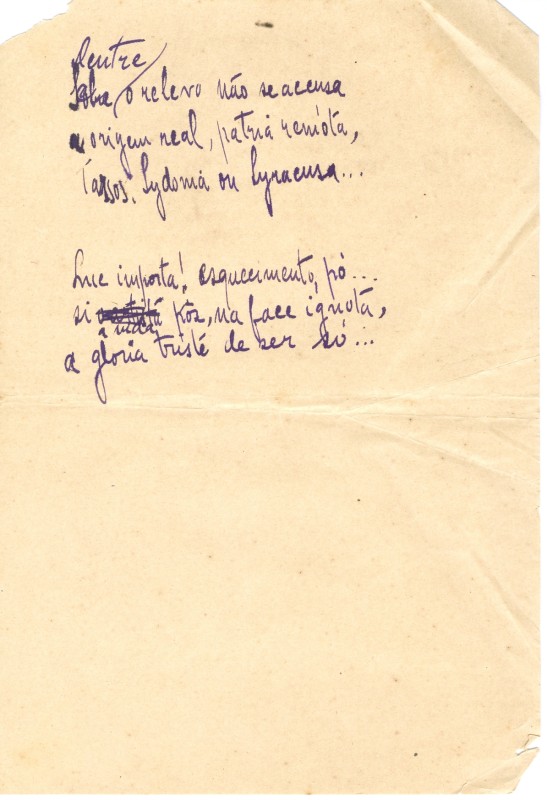 Dentre
Sobre o relevo não se accusa
a origem real, patria remóta,
Tassos, Sydonia ou Syracusa...
Que importa! esquecimento, pó...
si a vida pôz, na face ignóta,
a gloria triste de ser só...